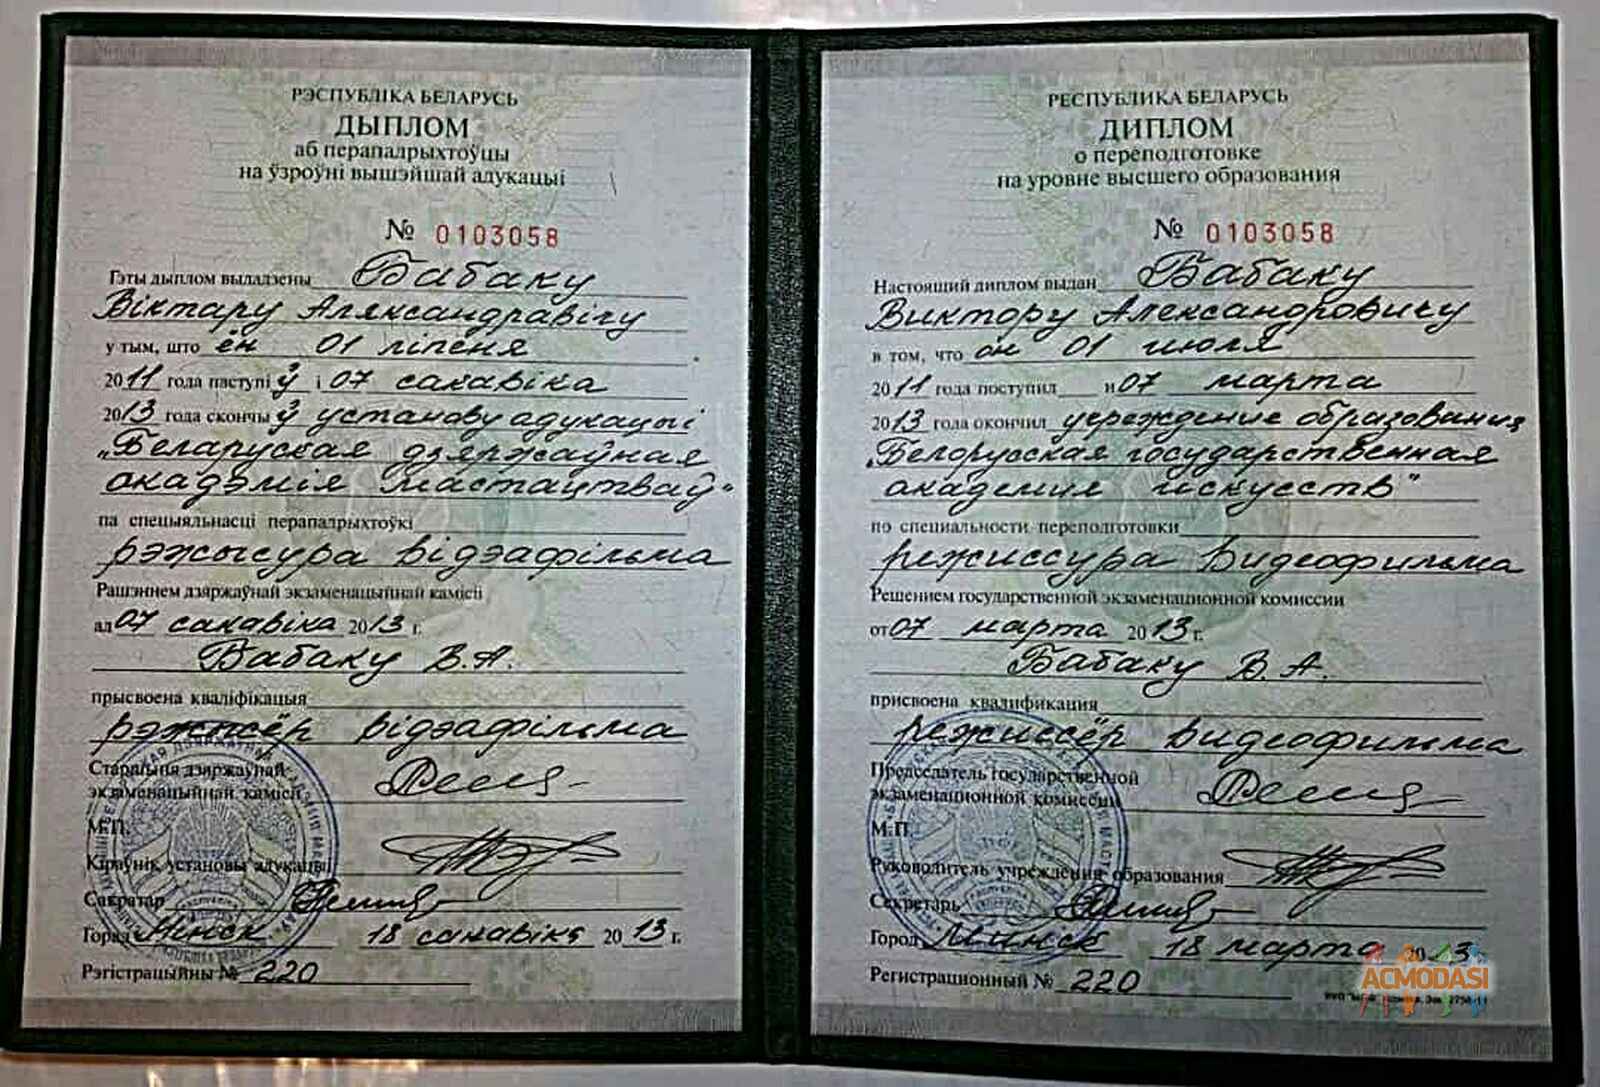 РЭСПУБЛІКА БЕЛАРУСЬ
ДЫПЛОМ
аб перападрыхтоўцы
на ўзроўні вышэйшай адукацыі
№ 0103058
Гэты дыплом выдадзены Бабаку
Віктару Аляксандравічу
у тым, што ён 01 ліпеня
2011 года паступіў і 07 сакавіка
2013 года скончыў установу адукацыі
„Беларуская дзяржаўная
акадэмія мастацтваў"
па спецыяльнасці перападрыхтоўкі
рэжысура відэафільма
Рашэннем дзяржаўнай экзаменацыйнай камісіі
ад 07 сакавіка 2013 г.
Бабаку В.А.
прысвоена кваліфікацыя
рэжысёр відэафільма
Старшыня дзяржаўнай
экзаменацыйнай камісіі
М.П.
Кіраўнік установы адукацыі
Сакратар
Горад Мінск 18 сакавіка 2013 г.
Рэгістрацыйны № 220
РЕСПУБЛИКА БЕЛАРУСЬ
ДИПЛОМ
о переподготовке
на уровне высшего образования
№ 0103058
Настоящий диплом выдан Бабаку
Виктору Александровичу
в том, что он 01 июля
2011 года поступил и 07 марта
2013 года окончил учреждение образования
„Белорусская государственная
академия искусств"
по специальности переподготовки
режиссура видеофильма
Решением государственной экзаменационной комиссии
от 07 марта 2013 г.
Бабаку В.А.
присвоена квалификация
режиссёр видеофильма
Председатель государственной
экзаменационной комиссии
М.П.
Руководитель учреждения образования
Секретарь
Город Минск 18 марта 2013
Регистрационный № 220
ACMODASI